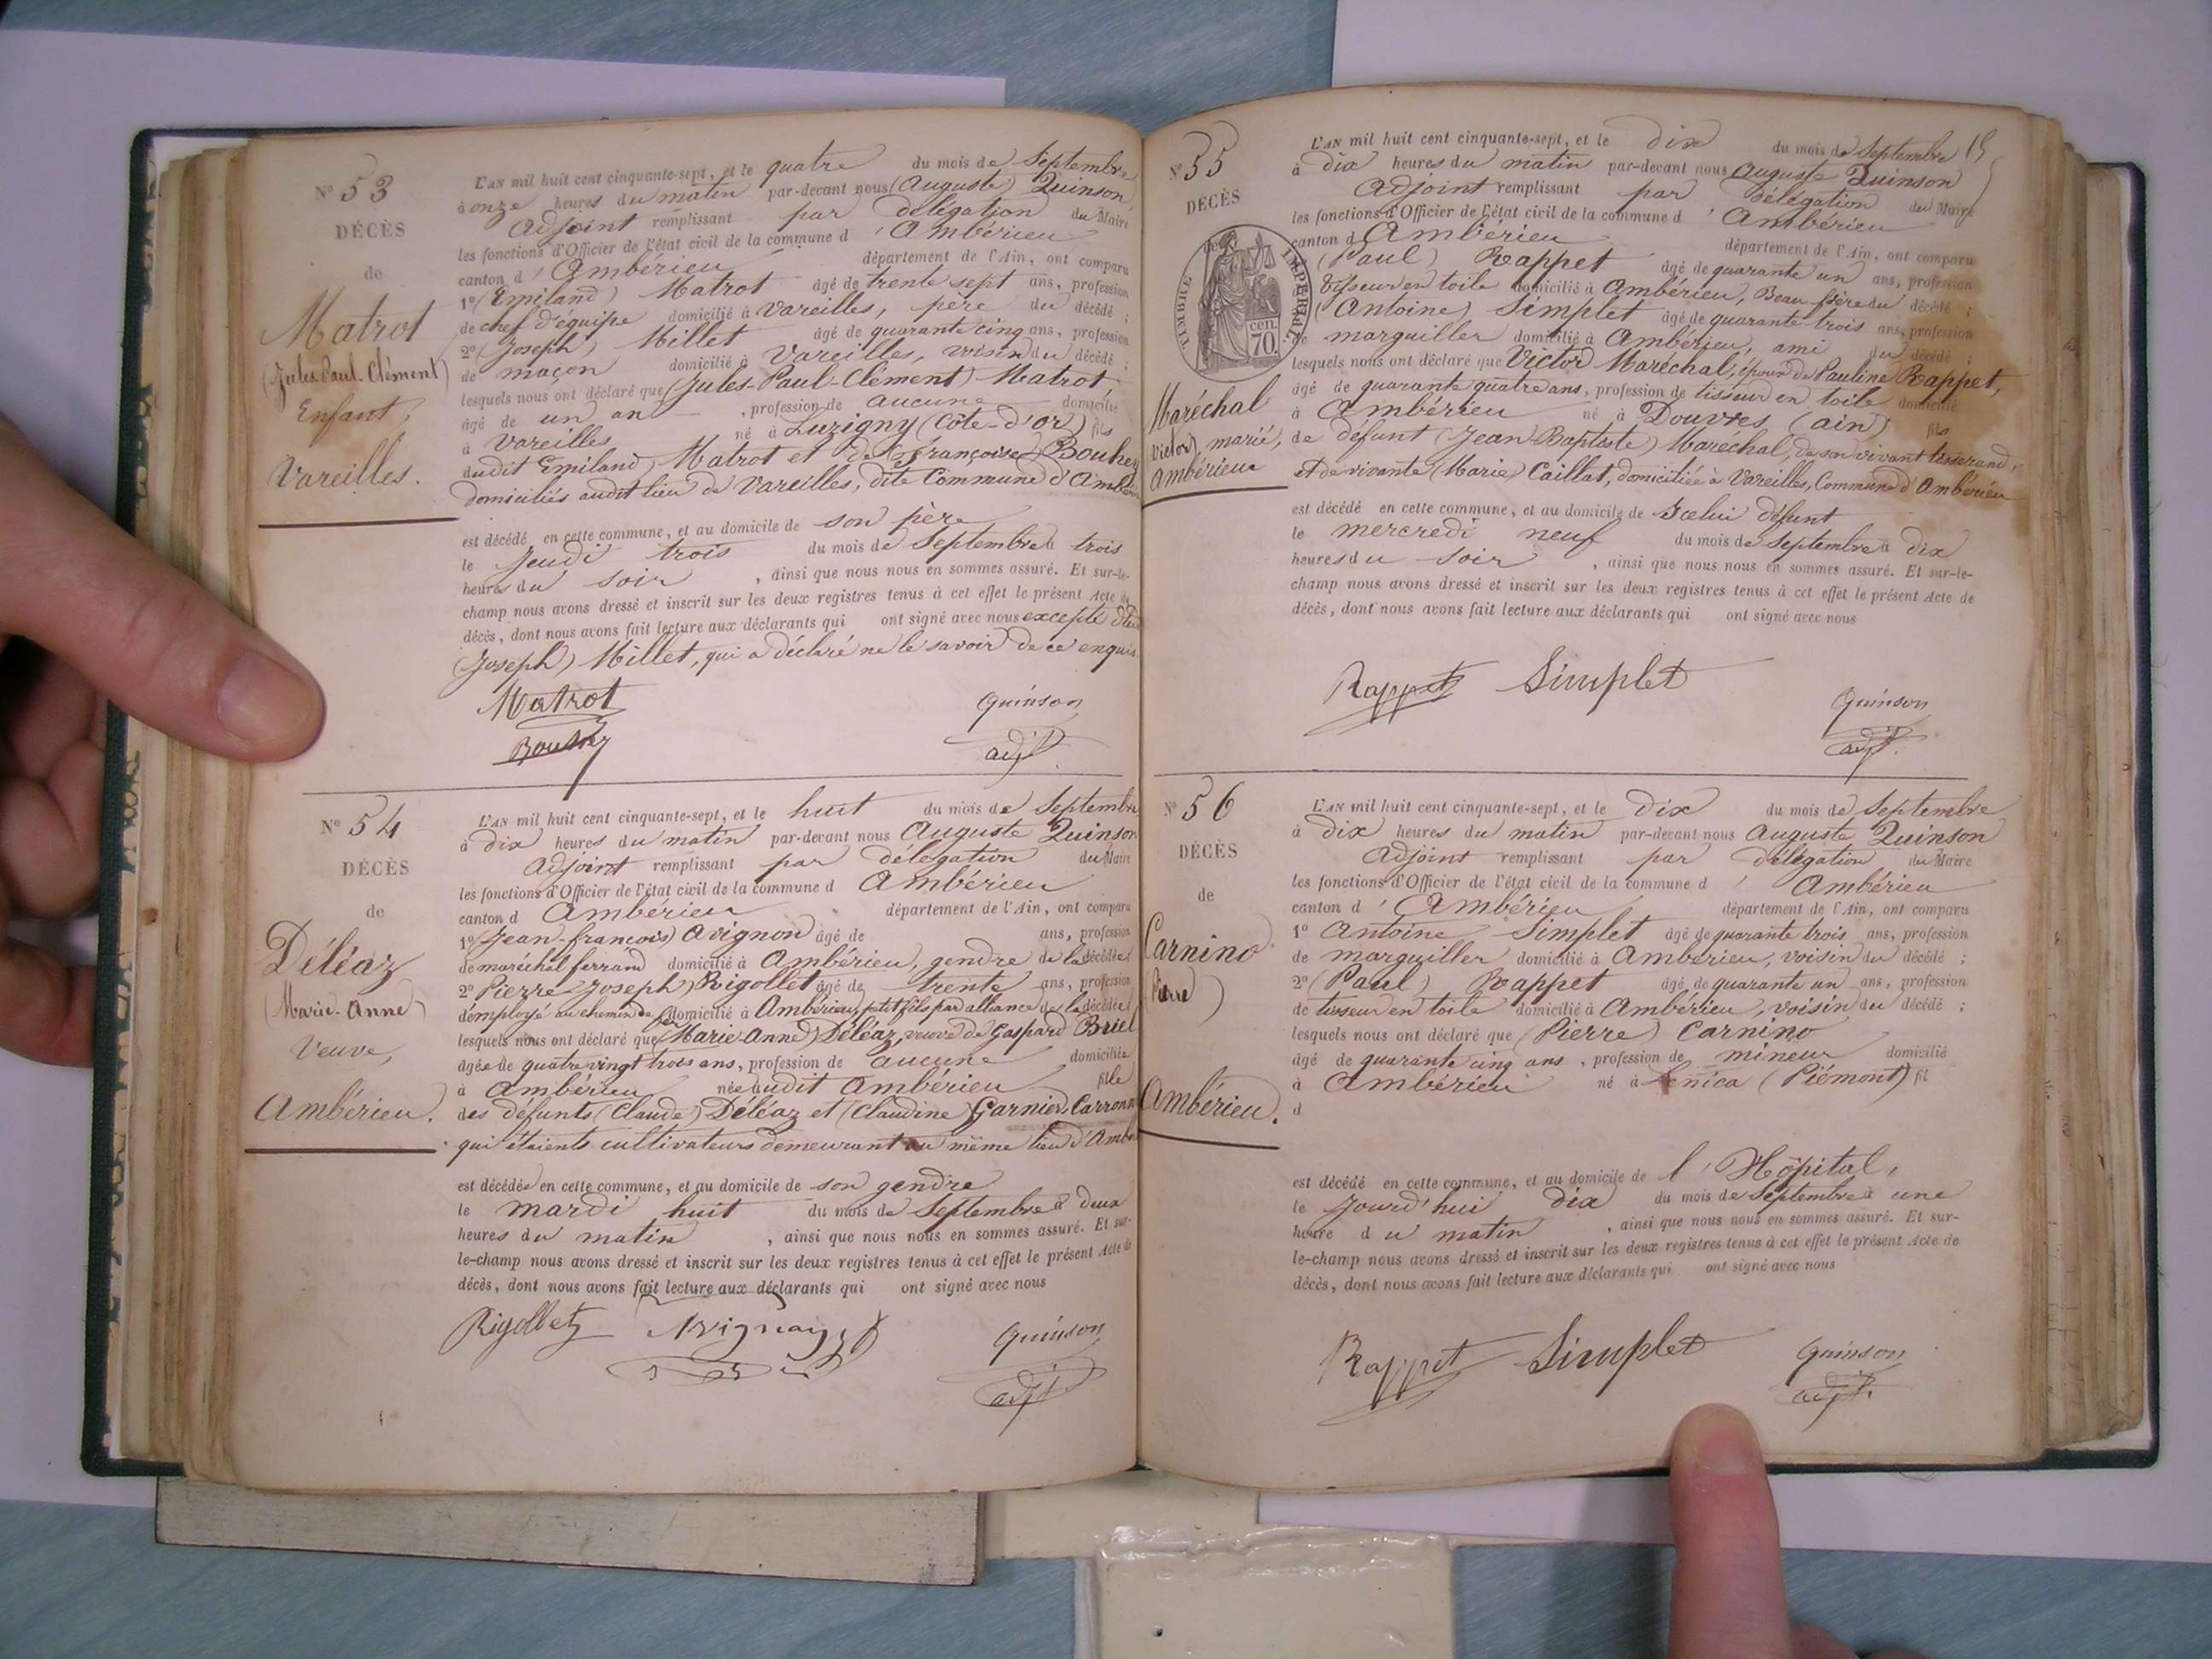 N° 53
DÉCÈS
de
Matrot
(Jules-Paul-Clément)
Enfant,
Vareilles.
L'AN mil huit cent cinquante-sept, et le quatre du mois de Septembre
à onze heures du matin par-devant nous (Auguste) Quinson,
Adjoint remplissant par délégation du Maire
les fonctions d'Officier de l'état civil de la commune d'Ambérieu
canton d'Ambérieu département de l'Ain, ont comparu
1° (Emiland) Matrot âgé de trente sept ans, profession
de chef d'équipe domicilié à Vareilles, père du décédé ;
2° (Joseph) Millet âgé de quarante cinq ans, profession
de maçon domicilié à Vareilles, voisin du décédé ;
lesquels nous ont déclaré que (Jules-Paul-Clément) Matrot
âgé de un an, profession de aucune domicilié
à Vareilles né à Luzigny (Côte-d'or) fils
dudit Emiland Matrot et de (françoise) Bouhey
domiciliés audit lieu de Vareilles, dite Commune d'Ambérieu
est décédé en cette commune, et au domicile de son père
le Jeudi trois du mois de Septembre à trois
heures du soir, ainsi que nous nous en sommes assuré. Et sur-le-
champ nous avons dressé et inscrit sur les deux registres tenus à cet effet le présent Acte de
décès, dont nous avons fait lecture aux déclarants qui ont signé avec nous excepté
(Joseph) Millet, qui a déclaré ne le savoir de ce enquis.
Matrot Quinson
adjt.
N° 54
DÉCÈS
de
Déléaz
(Marie-Anne)
Veuve,
Ambérieu.
L'AN mil huit cent cinquante-sept, et le huit du mois de Septembre
à dix heures du matin par-devant nous Auguste Quinson
Adjoint remplissant par délégation du Maire
les fonctions d'Officier de l'état civil de la commune d Ambérieu
canton d Ambérieu département de l'Ain, ont comparu
1° (Jean-françois) Avignon âgé de ans, profession
de maréchal ferrand domicilié à Ambérieu, gendre de la décédée
2° Pierre-Joseph) Rigollet âgé de trente ans, profession
d'employé au chemin de fer domicilié à Ambérieu, petit fils par alliance de la décédée
lesquels nous ont déclaré que (Marie-Anne) Déléaz, veuve de Gaspard Briel
âgée de quatre vingt trois ans, profession de aucune domiciliée
à Ambérieu née audit Ambérieu fille
des défunts (Claude) Déléaz et (Claudine) Garnier-Carronn
qui étaients cultivateurs demeurant au même lieu d'Amb
est décédée en cette commune, et au domicile de son gendre
le mardi huit du mois de Septembre à deux
heures du matin, ainsi que nous nous en sommes assuré. Et sur-
le-champ nous avons dressé et inscrit sur les deux registres tenus à cet effet le présent Acte de
décès, dont nous avons fait lecture aux déclarants qui ont signé avec nous
Rigollet Quinson
adjt.
N° 55
DÉCÈS
TIMBRE IMPÉRIAL
70 cen.
Maréchal
Victor) marié,
Ambérieu
15
L'AN mil huit cent cinquante-sept, et le dix du mois de Septembre
à dix heures du matin par-devant nous Auguste Quinson
Adjoint remplissant par délégation du Maire
les fonctions d'Officier de l'état civil de la commune d'Ambérieu
canton d'Ambérieu département de l'Ain, ont comparu
(Paul) Rappet âgé de quarante un ans, profession
tisseur en toile domicilié à Ambérieu, Beau frère du décédé ;
(Antoine) Simplet âgé de quarante trois ans, profession
de marguiller domicilié à Ambérieu, ami du décédé ;
lesquels nous ont déclaré que Victor Maréchal, époux de Pauline Rappet,
âgé de quarante quatre ans, profession de tisseur en toile domicilié
à Ambérieu né à Douvres (ain) fils
de défunt (Jean-Baptiste) Maréchal, de son vivant tisserand,
et de vivante (Marie) Caillat, domiciliée à Vareilles, Commune d'Ambérieu
est décédé en cette commune, et au domicile de Icelui défunt
le mercredi neuf du mois de Septembre à dix
heures du soir, ainsi que nous nous en sommes assuré. Et sur-le-
champ nous avons dressé et inscrit sur les deux registres tenus à cet effet le présent Acte de
décès, dont nous avons fait lecture aux déclarants qui ont signé avec nous
Rappet Simplet Quinson
adjt.
N° 56
DÉCÈS
de
Carnino
(Pierre)
Ambérieu.
L'AN mil huit cent cinquante-sept, et le dix du mois de Septembre
à dix heures du matin par-devant nous Auguste Quinson
Adjoint remplissant par délégation du Maire
les fonctions d'Officier de l'état civil de la commune d'Ambérieu
canton d'Ambérieu département de l'Ain, ont comparu
1° Antoine Simplet âgé de quarante trois ans, profession
de marguiller domicilié à Ambérieu, voisin du décédé ;
2° (Paul) Rappet âgé de quarante un ans, profession
de tisseur en toile domicilié à Ambérieu, voisin du décédé ;
lesquels nous ont déclaré que (Pierre) Carnino
âgé de quarante cinq ans, profession de mineur domicilié
à Ambérieu né à (Piémont) fil
d
est décédé en cette commune, et au domicile de l'Hôpital,
le Jourd'hui dix du mois de Septembre à une
heure du matin, ainsi que nous nous en sommes assuré. Et sur-
le-champ nous avons dressé et inscrit sur les deux registres tenus à cet effet le présent Acte de
décès, dont nous avons fait lecture aux déclarants qui ont signé avec nous
Rappet Simplet Quinson
adjt.